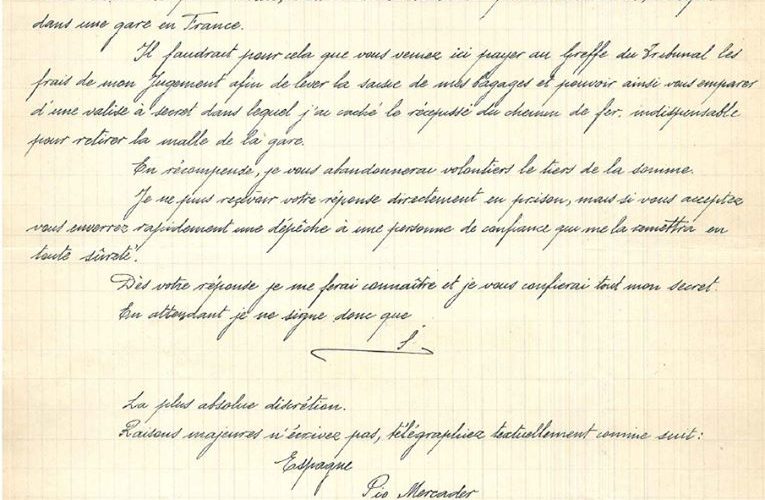 dans une gare en France.
Il faudrait pour cela que vous veniez ici payer au Greffe du Tribunal les
frais de mon Jugement afin de lever la saisie de mes bagages et pouvoir ainsi vous emparer
d'une valise à secret dans lequel j'ai caché le récépissé du chemin de fer, indispensable
pour retirer la malle de la gare.
En récompense, je vous abandonnerai volontiers le tiers de la somme.
Je ne puis recevoir votre réponse directement en prison, mais si vous acceptez
vous enverrez rapidement une dépêche à une personne de confiance qui me la remettra en
toute sûreté.
Dès votre réponse je me ferai connaître et je vous confierai tout mon secret.
En attendant je ne signe donc que
S.
La plus absolue discrétion.
Raisons majeures n'écrivez pas, télégraphiez textuellement comme suit:
Espagne
Pio Mercader